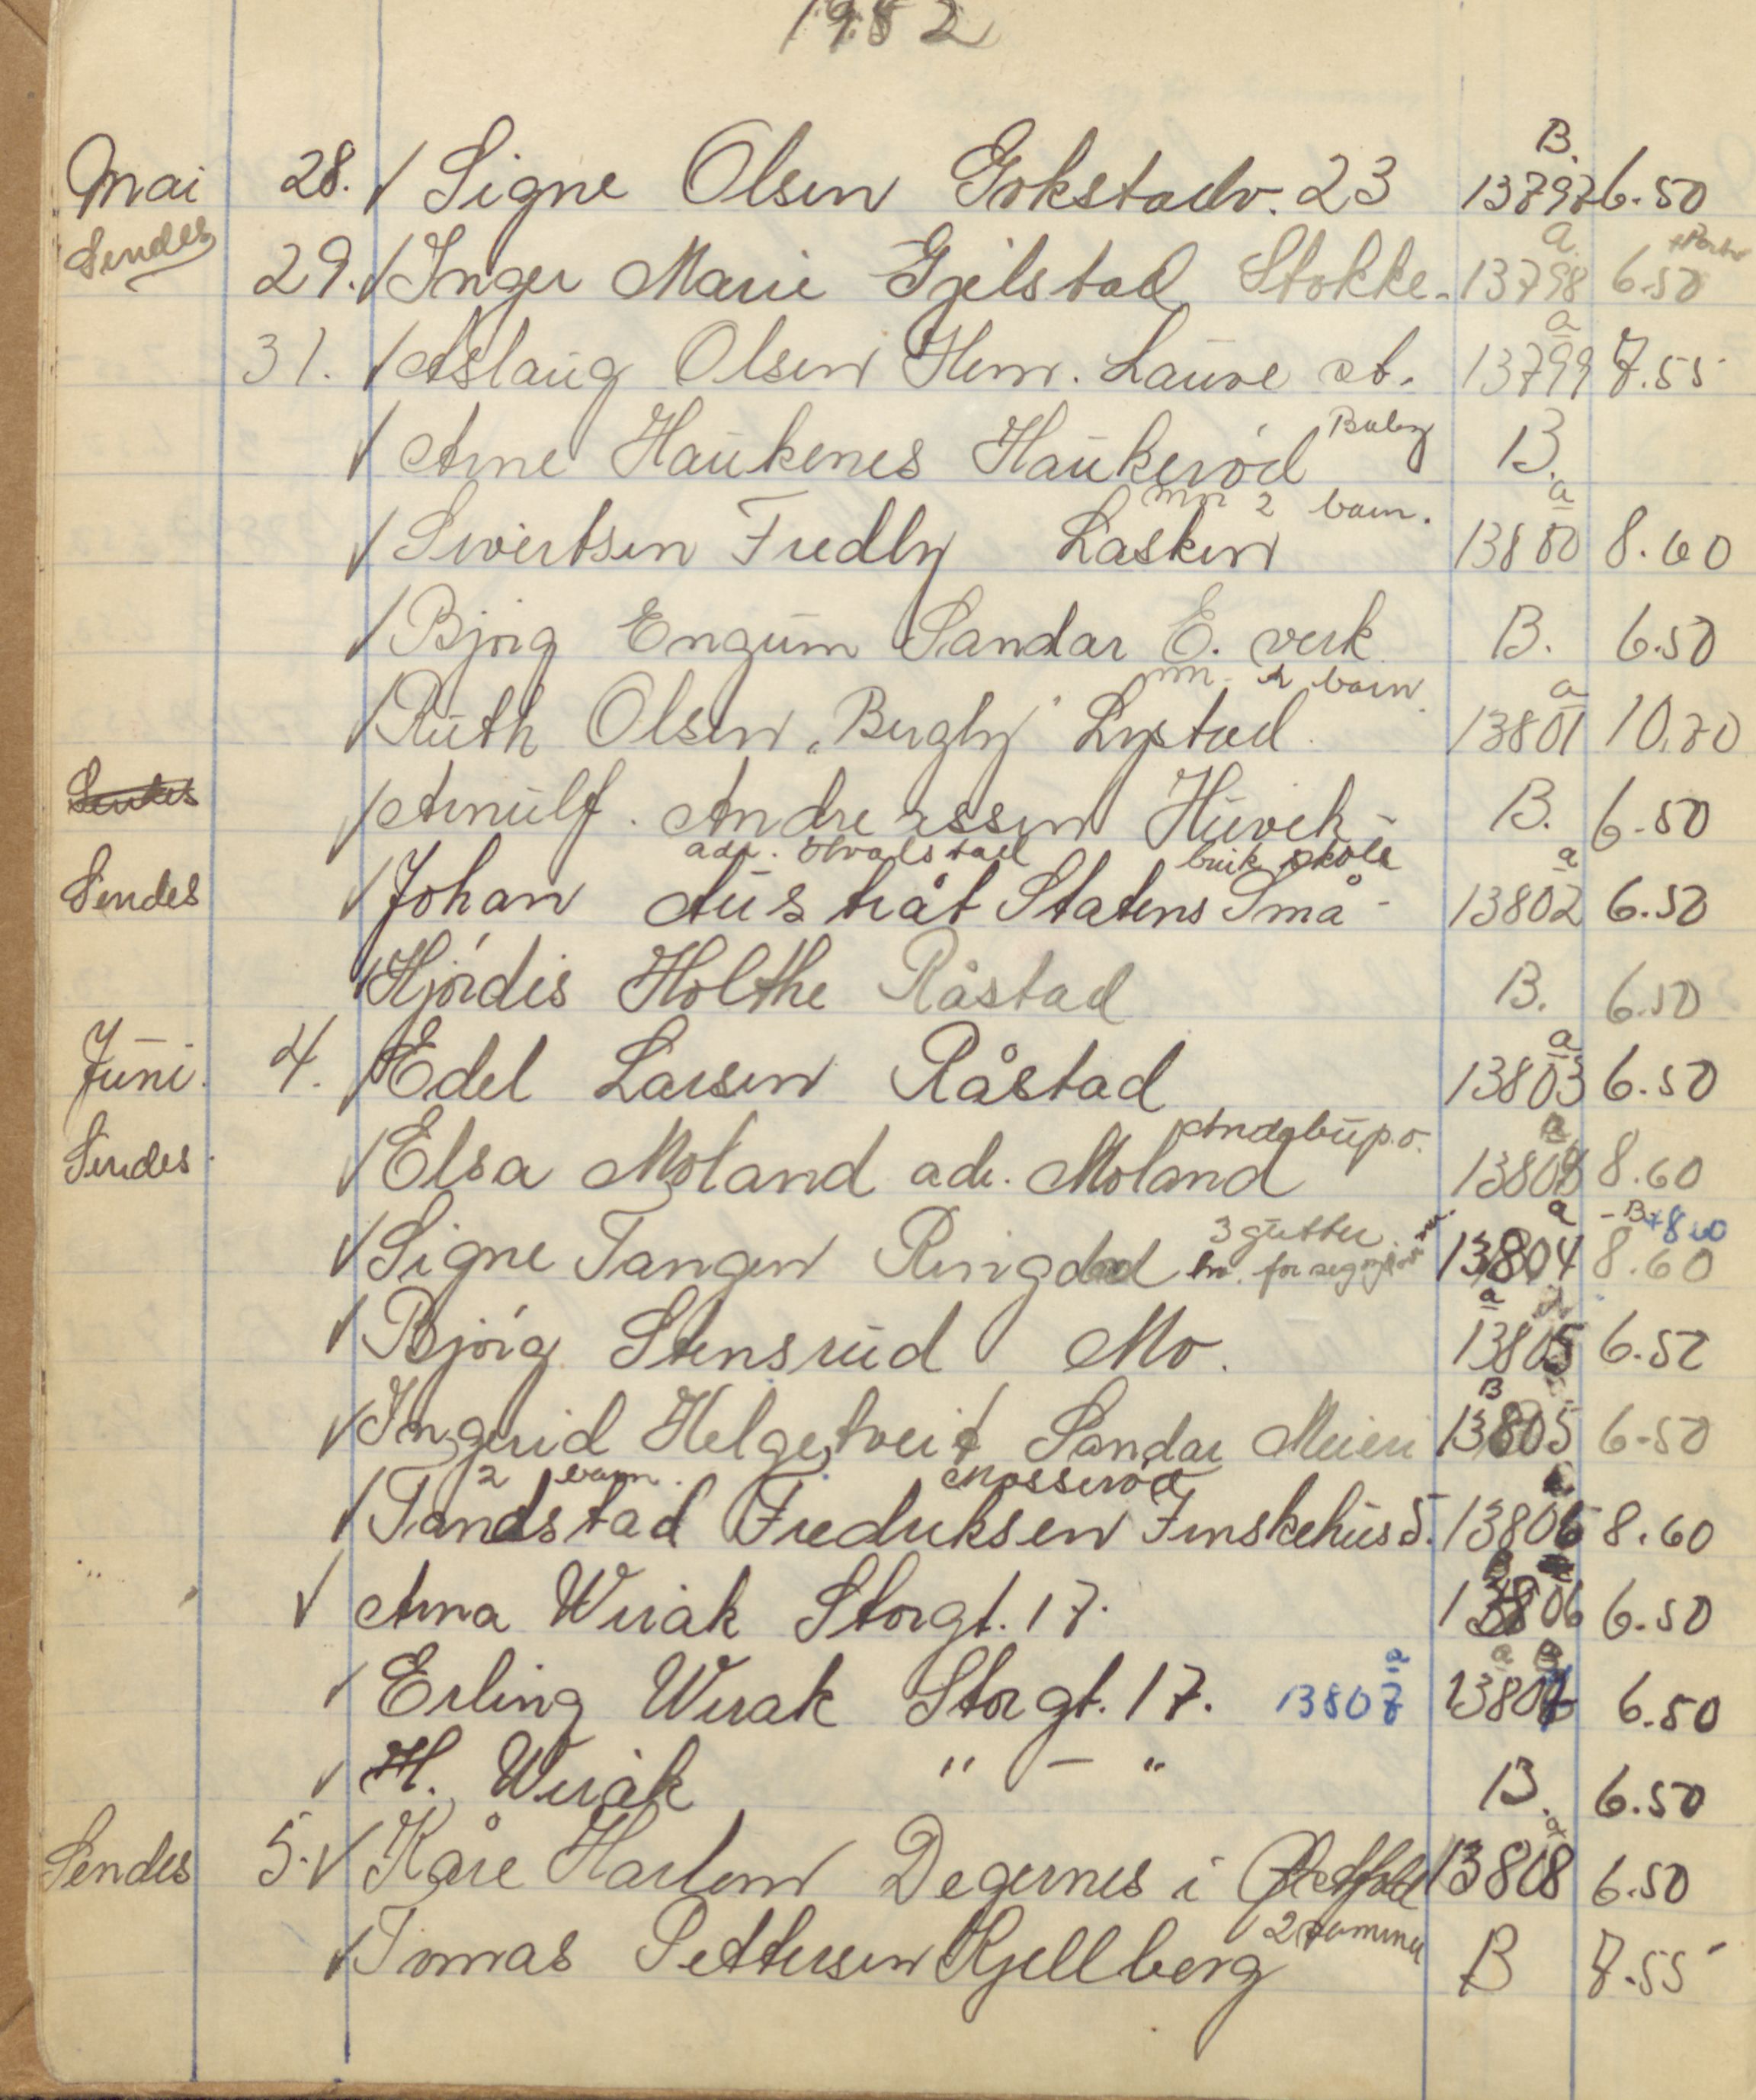 1952
B.
Mai 28. √ Signe Olsen Gokstadv. 23 13797 6.50
Sendes a. + Porto
29. √ Inger Marie Gjelstad Stokke. 13798 6.50
a
31. √ Aslaug Olsen Her. Lauve st. 13799 7.55
Baby
√ Arne Haukenes Haukerød B.
2 barn. a
√ Sivertsen Fredly Lasken 13800 8.60
√ Bjørg Engum Sandar E. verk B. 6.50
barn. a
√ Ruth Olsen „Bugly" Lystad 13801 10.70
Sendes √ Arnulf. Andreassen Huvik - B. 6.50
adr. Hvalstad bruk skole a
Sendes √ Johan Austråt Statens Små - 13802 6.50
√ Hjørdis Holthe Råstad B. 6.50
a
Juni. 4. √ Edel Larsen Råstad 13803 6.50
Andebu p.o.
Sendes. √ Elsa Moland adr. Moland 8.60
3 gutter. a - B + 8.60
√ Signe Tangen Ringdal for seg 13804 8.60
a
√ Bjørg Stensrud Mo. 13805 6.50
B
√ Ingerid Helgetveit Sandar Meieri 13805 6-50
2 barn. Mosserød
√ Tandstad Fredriksen Finskehus 5. 13806 8.60
B
√ Anna Wirak Storgt. 17. 13806 6.50
a a
√ Erling Wirak Storgt. 17. 13807 13807 6.50
√ H. Wirak " - " B. 6.50
a
Sendes 5. √ Kåre Harlem Degernes i Østfold 13808 6.50
2 rammer
√ Tomas Pettersen Kjellberg B 7.55